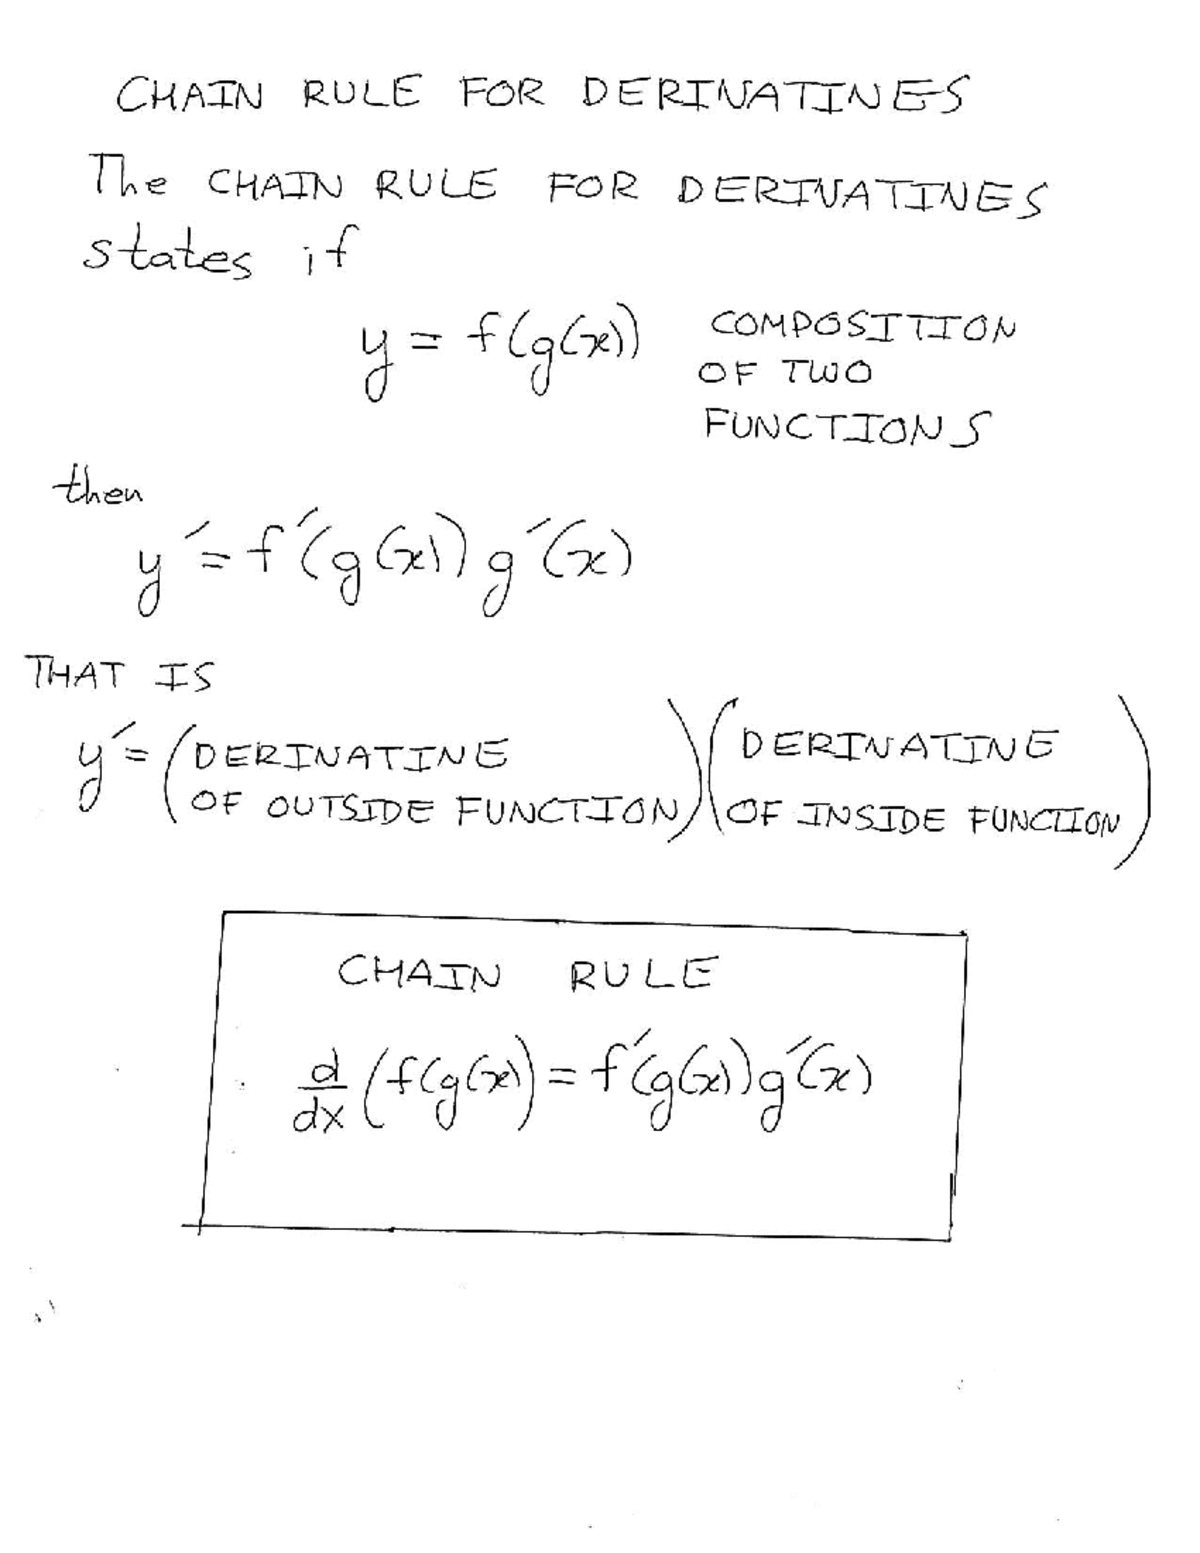 CHAIN RULE FOR DERIVATIVES
The CHAIN RULE FOR DERIVATIVES
states if
y = f(g(x)) COMPOSITION
OF TWO
FUNCTIONS
then
y′ = f′(g(x)) g′(x)
THAT IS
y′ = (DERIVATIVE OF OUTSIDE FUNCTION) (DERIVATIVE OF INSIDE FUNCTION)
CHAIN RULE
d/dx (f(g(x)) = f′(g(x)) g′(x)